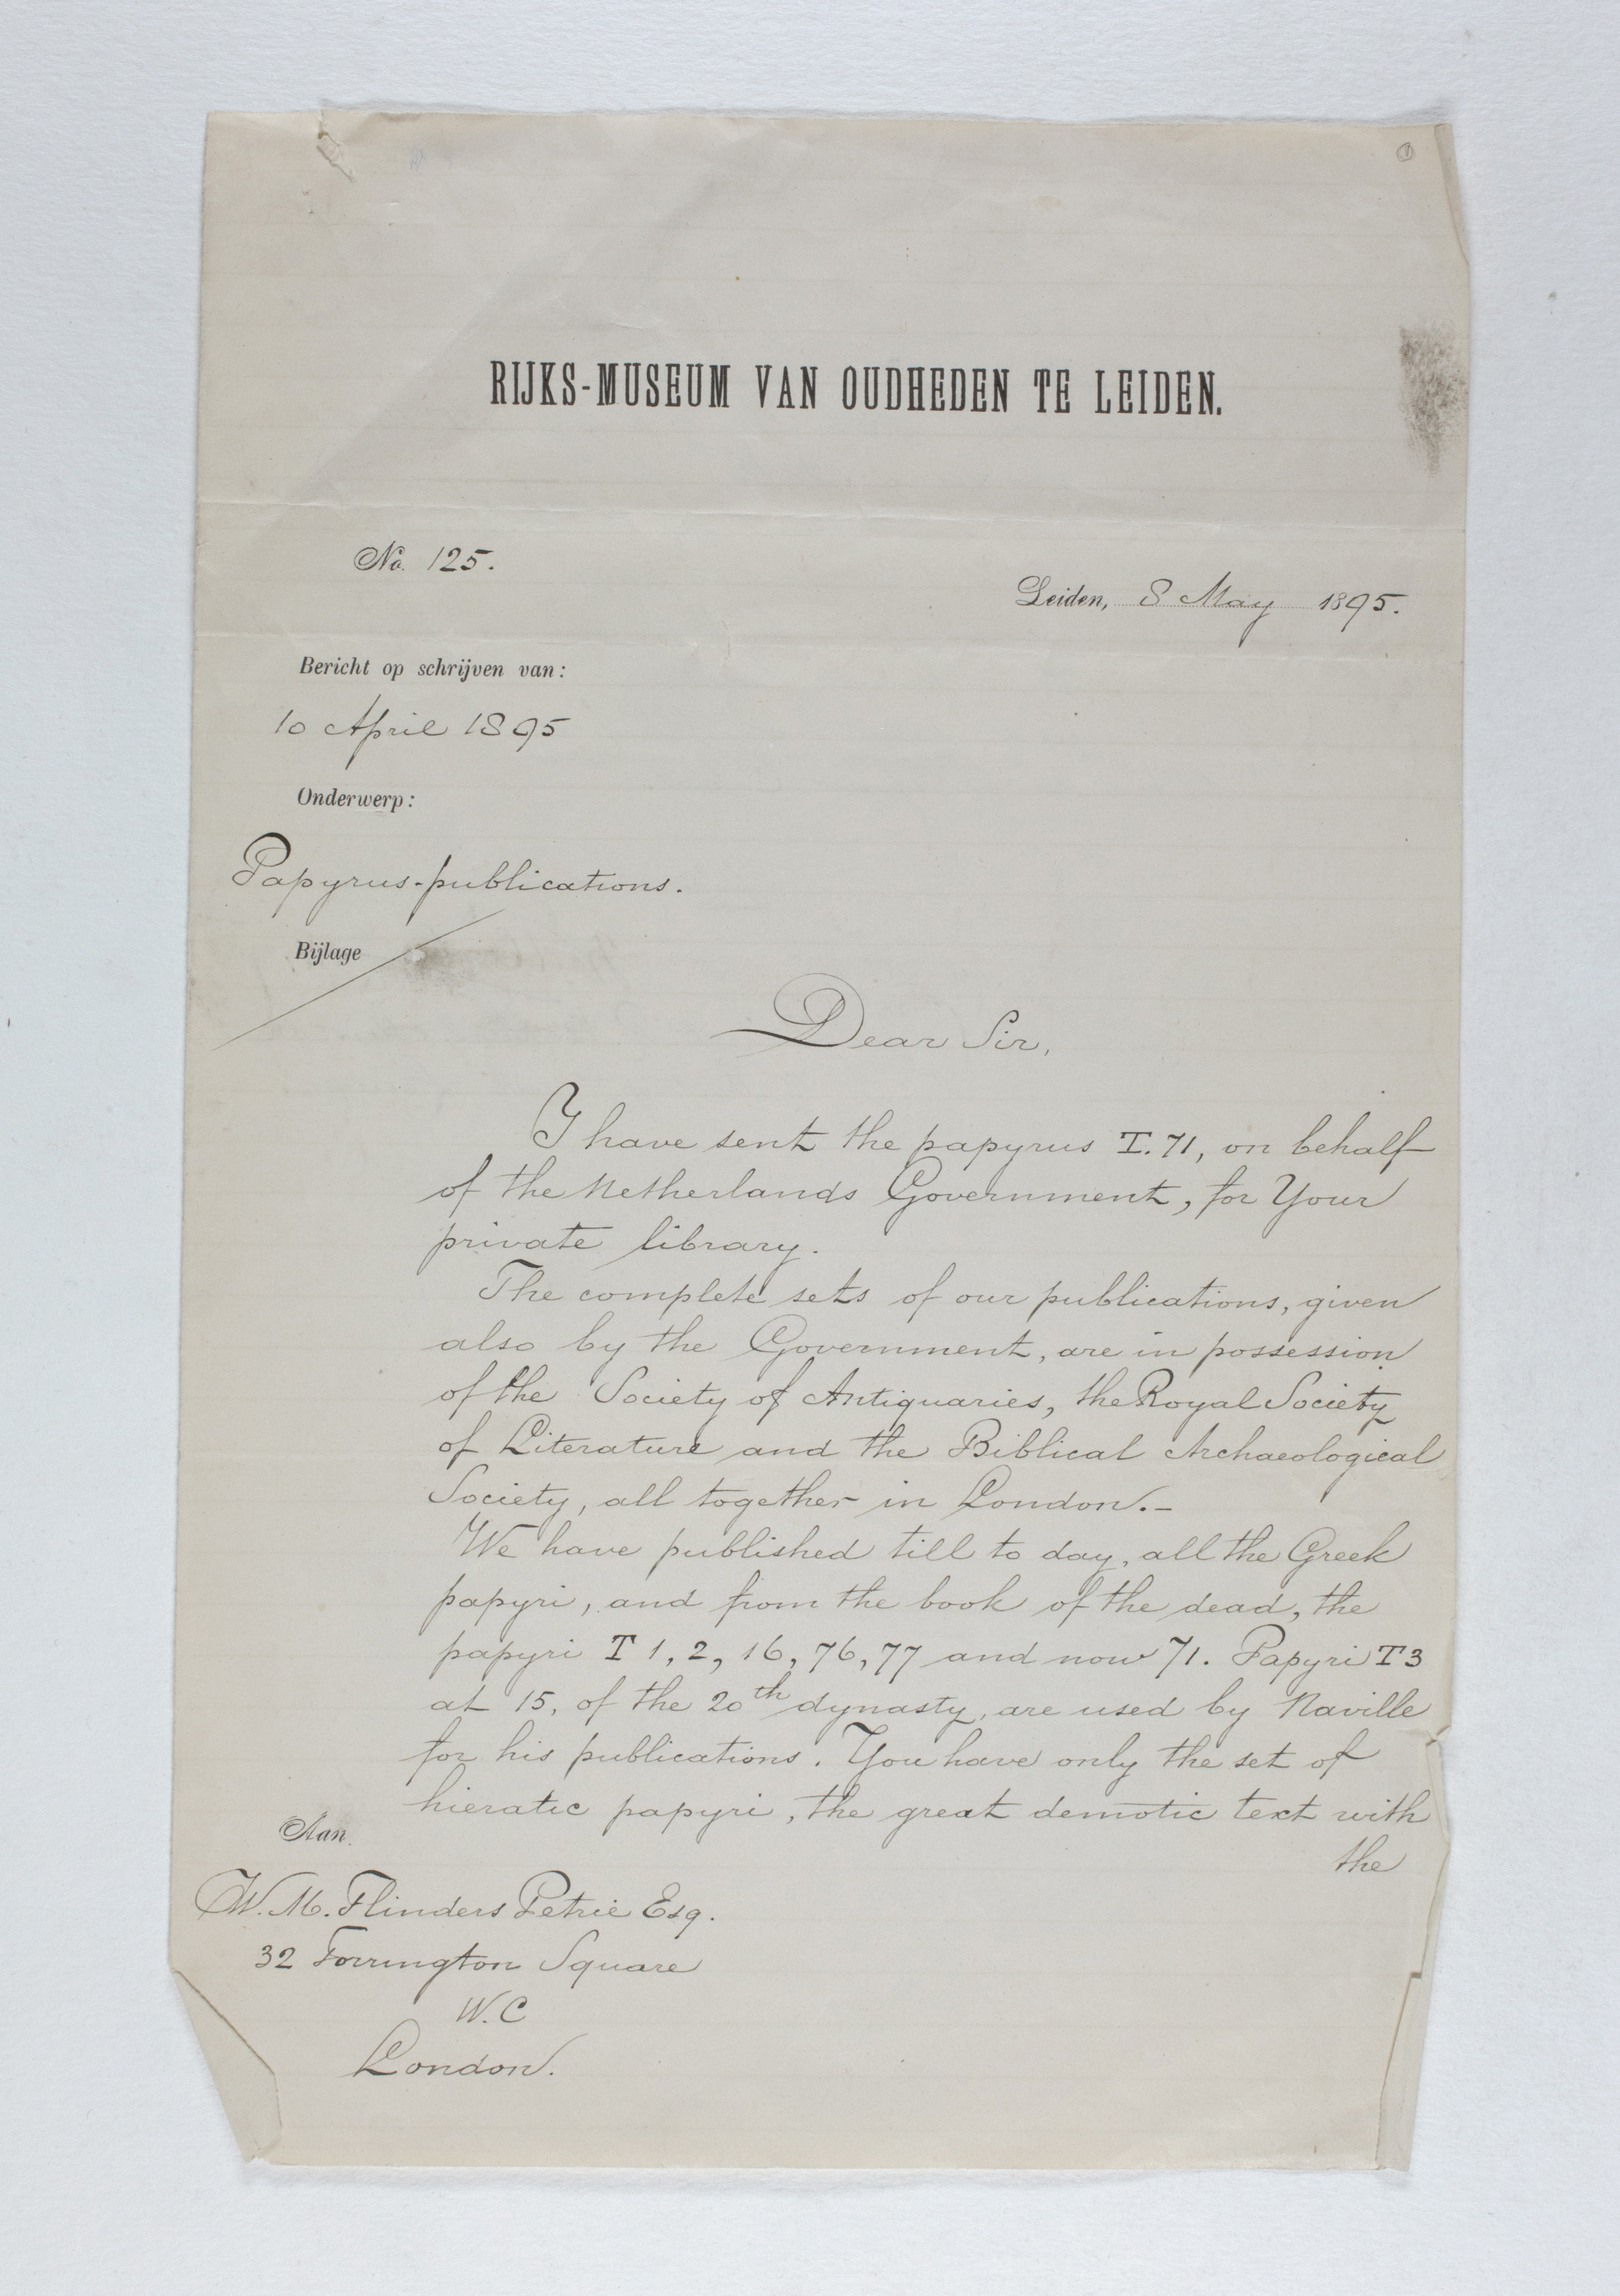 RIJKS-MUSEUM VAN OUDHEDEN TE LEIDEN.
No. 125.
Leiden, 8 May 1895.
Bericht op schrijven van:
10 April 1895
Onderwerp:
Papyrus-publications.
Bijlage
Dear Sir,
I have sent the papyrus T. 71, on behalf
of the Netherlands Government, for Your
private library.
The complete sets of our publications, given
also by the Government, are in possession
of the Society of Antiquaries, the Royal Society
of Literature and the Biblical Archaeological
Society, all together in London.-
We have published till to day, all the Greek
papyri, and from the book of the dead, the
papyri T 1, 2, 16, 76, 77 and now 71. Papyri T 3
at 15, of the 20th dynasty, are used by Naville
for his publications. You have only the set of
hieratic papyri, the great demotic text with
the
Aan
W. M. Flinders Petrie Esq.
32 Torrington Square
W. C
London.